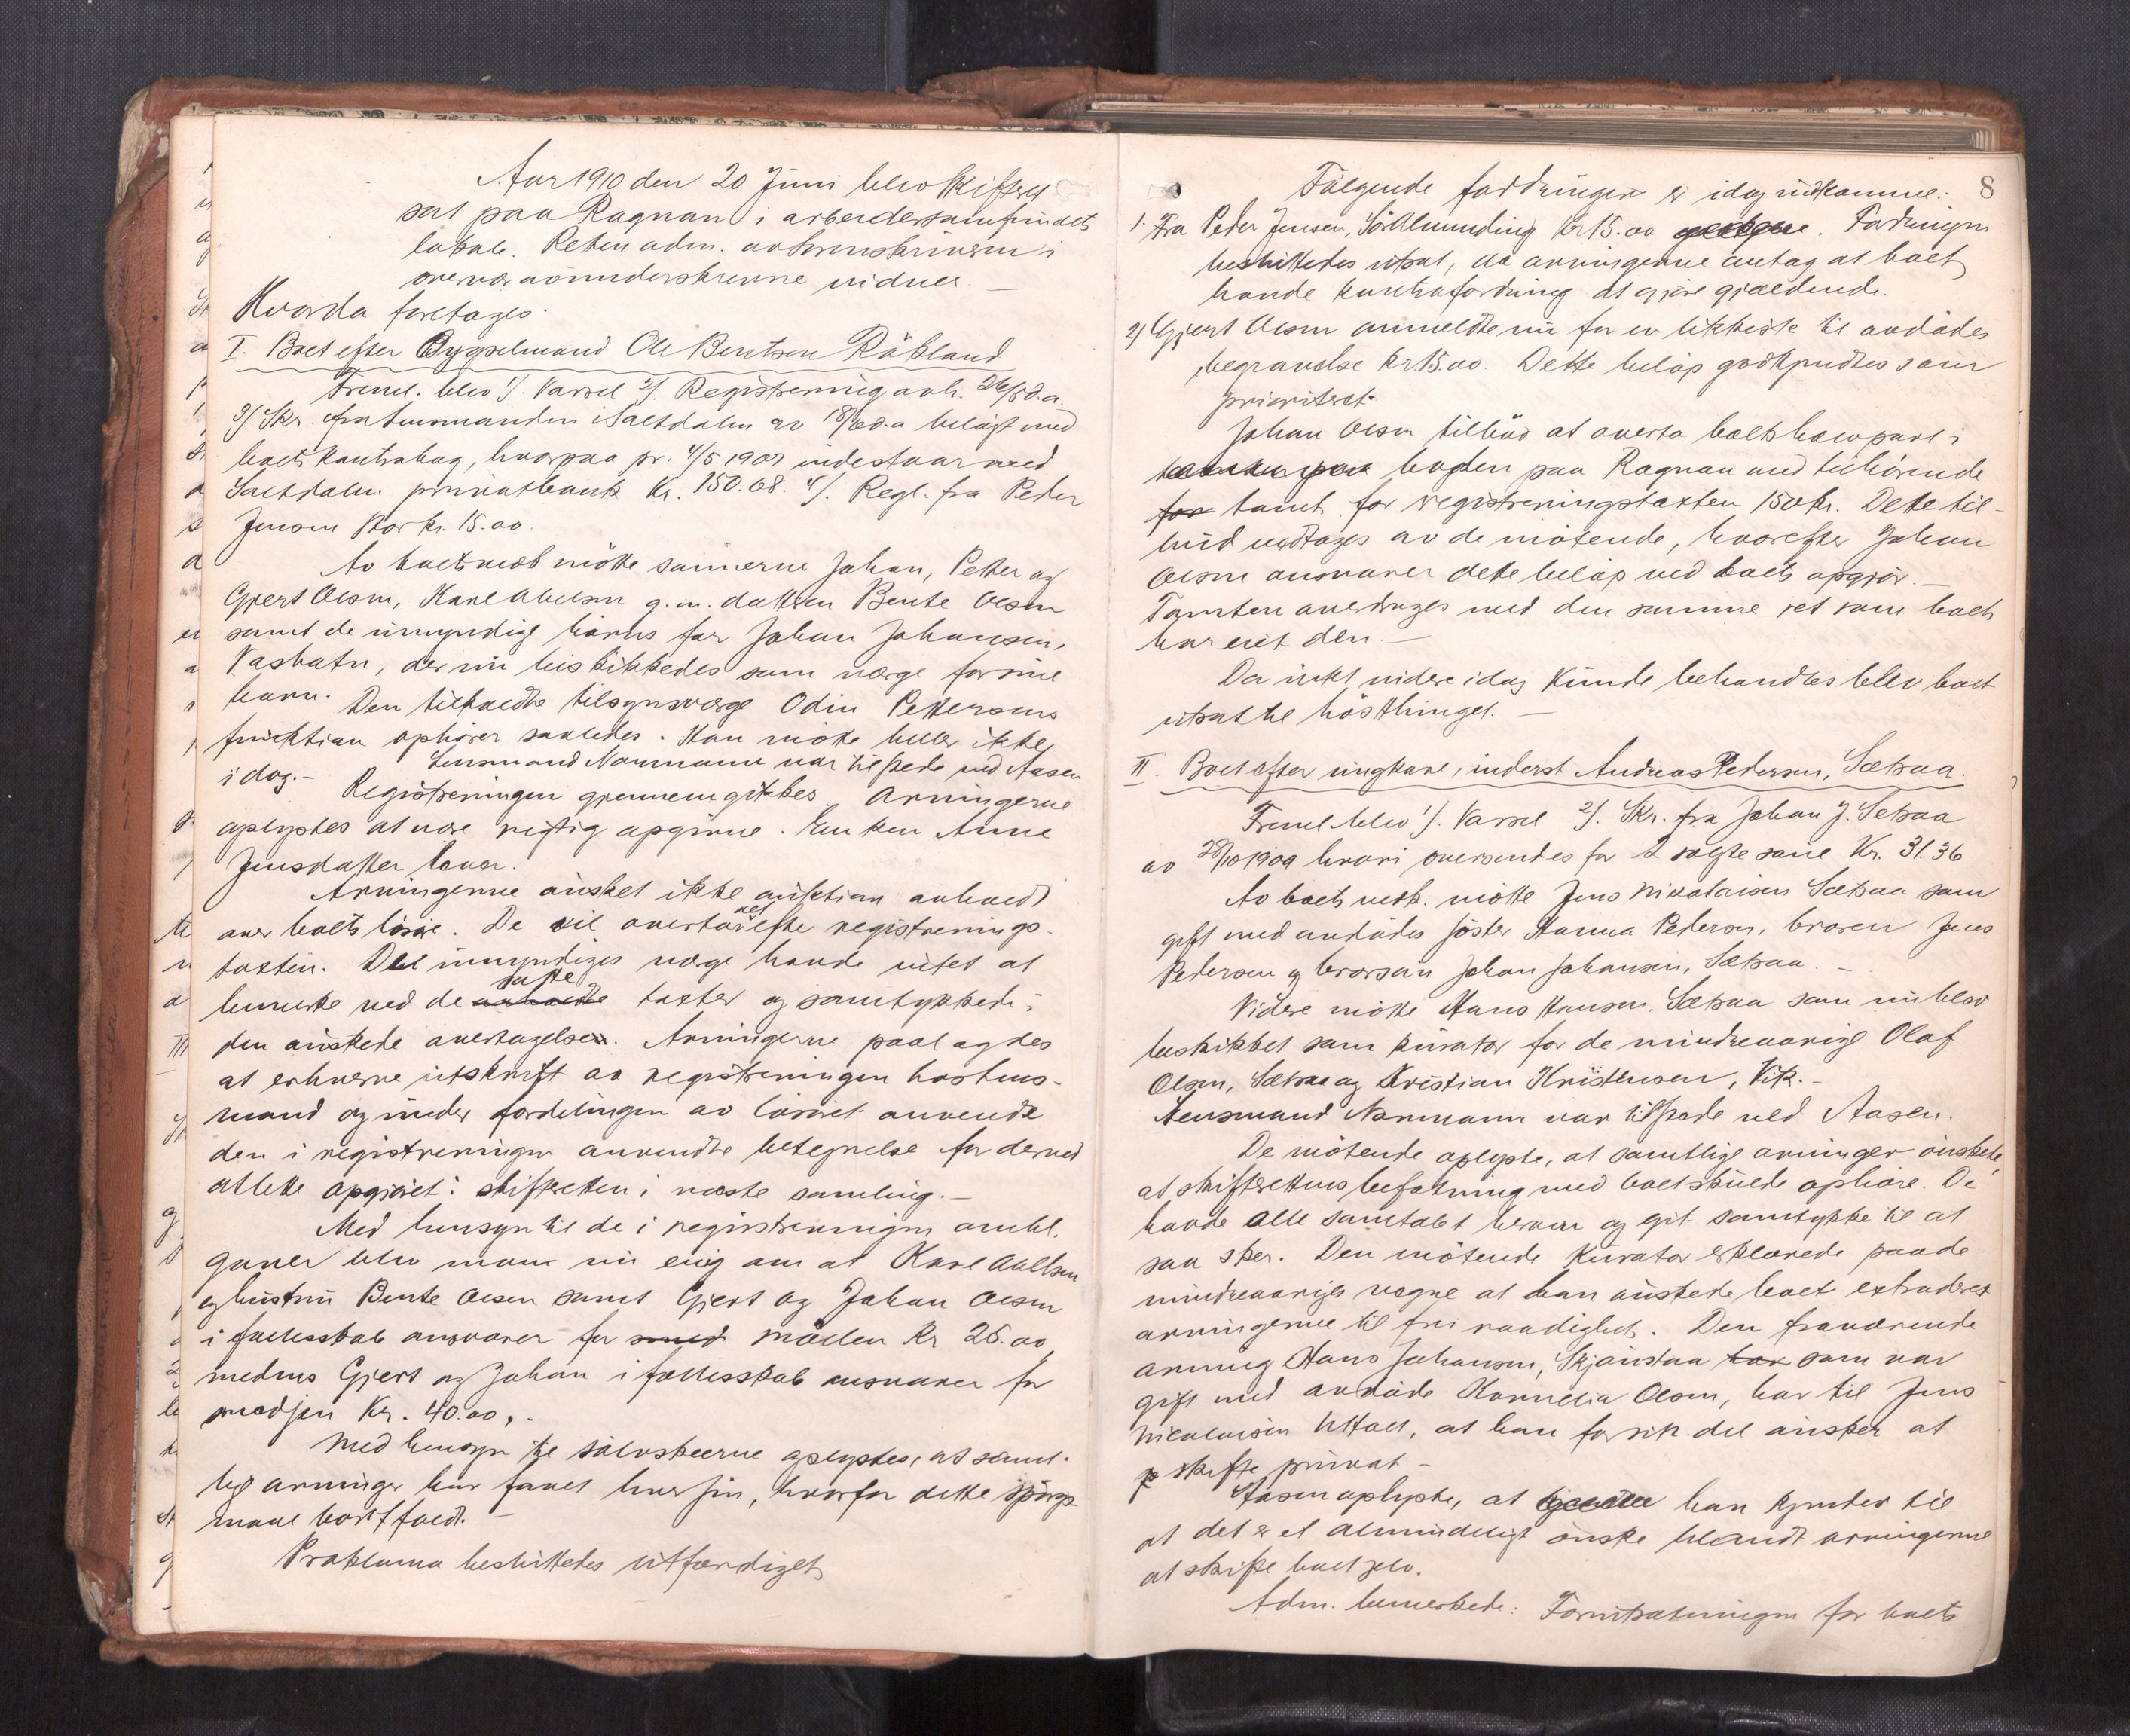 Aar 1910 den 20 Juni blev skifteret
sat paa Rognan i arbeidersamfundets
lokale. Retten adm. av sorenskriveren i
overvær av underskrevne vidner. —
Hvorda foretages:
I. Boet efter Bygselmand Ole Bentsen Råkland
Freml. blev 1/. Varsel 2/. Registrering avh. 26/5 d.a.
3/ Skr. fra lensmanden i Saltdalen av 18/6 d.a bilagt med
boets kontrabog, hvorpaa pr. 4/5 1907 indestaar med
Saltdalen privatbank Kr. 150.68. 4/. Regl. fra Peder
Jensen stor kr. 15.00.
Av boets vedk møtte sønnerne Johan, Petter og
Gjert Olsen, Karl Abelsen g.m. datteren Bente Olsen
samt de umyndige børns far Johan Johansen,
Vasbotn, der nu beskikkedes som værge for sine
børn. Den tilkaldte tilsynsværge Odin Pettersens
funktion ophører saaledes. Han møtte heller ikke
i dag. – Lensmand Normann var tilstede ved Aasen
Registreningen gjennemgikkes. Arvingerne
oplystes at være rigtig opgivne. Enken Anne
Jensdatter lever.
Arvingerne ønsket ikke auktion avholdt
over boets løsøre. De vil overta det efter registrerings-
taxten. Den umyndiges værge havde intet at
bemerke ved de satte taxter og samtykkede i
den ønskede overtagelse. Arvingerne paalagdes
at erhverve utskrift av registreringen hos lens-
mand og under fordelingen av løsøret anvende
den i registreringen anvendte betegnelse for derved
at lette opgjøret i skifteretten i næste samling. —
Med hensyn til de i registreringen omhl.
gaver blev man nu enig om at Karl Abelsen
og hustru Bente Olsen samt Gjert og Johan Olsen
i fællesskab ansvarer for møllen Kr 25.00,
medens Gjert og Johan i fællesskab ansvarer for
smedjen Kr. 40.00,.
Med hensyn til sølvskeerne oplystes, at samt-
lige arvinger har faaet hver sin, hvorfor dette spørgs-
maal bortfaldt. —
Proklama besluttedes utfærdiget
8
Følgende fordringer er idag indkommet:
1. Fra Peder Jensen, Kr 15.00. Fordringen
besluttedes utsat, da arvingerne antog at boet
havde kontrafordring at gjøre gjældende.
2) Gjert Olsen anmeldte nu for en likkiste til avdødes
begravelse kr 15.00. Dette beløp godkjendtes som
prioritert.
Johan Olsen tilbød at overta boets halvpart i
boden paa Rognan med tilhørende
tomt for registreringstaxten 150 kr. Dette til-
bud vedtages av de møtende, hvorefter Johan
Olsen ansvarer dette beløp ved boets opgjør. —
Tomten overdrages med den samme ret som boet
har eiet den. —
Da intet videre idag kunde behandles blev boet
utsat til høstthinget. —
II. Boet efter ungkarl, inderst Andreas Pedersen, Sætsaa.
Freml. blev 1/. Varsel 2/. Skr. fra Johan J. Setsaa
av 28/10 1909 hvori oversendes for 2 solgte saue Kr. 31.36
Av boets vedk. møtte Jens Nikolaisen Sætsaa som
gift med avdødes søster Hanna Pedersen, broren Jens
Pedersen og brorsøn Johan Johansen, Sætsaa. —
Videre møtte Hans Hansen, Sætsaa som nu blev
beskikket som kurator for de mindreaarige Olaf
Olsen, Sætsaa og Kristian Kristensen, Vik. –
Lensmand Normann var tilstede ved Aasen.
De møtende oplyste, at samtlige arvinger ønskede,
at skifterettens befatning med boet skulde ophøre. De
havde alle samtalet herom og git samtykke til at
saa sker. Den møtende kurator erklærede paa de
mindreaariges vegne at han ønskede boet extraderet
arvingerne til fri raadighet. Den fraværende
arving Hans Johansen, som var
gift med avdøde Kornelia Olsen, har til Jens
Nicolaisen uttalt, at han for sin del ønsker at
skifte privat –
Aasen oplyste, at han kjender til
at det er et almindeligt ønske blandt arvingerne
at skifte boet selv.
Adm. bemerkede: Forutsætningen for boets